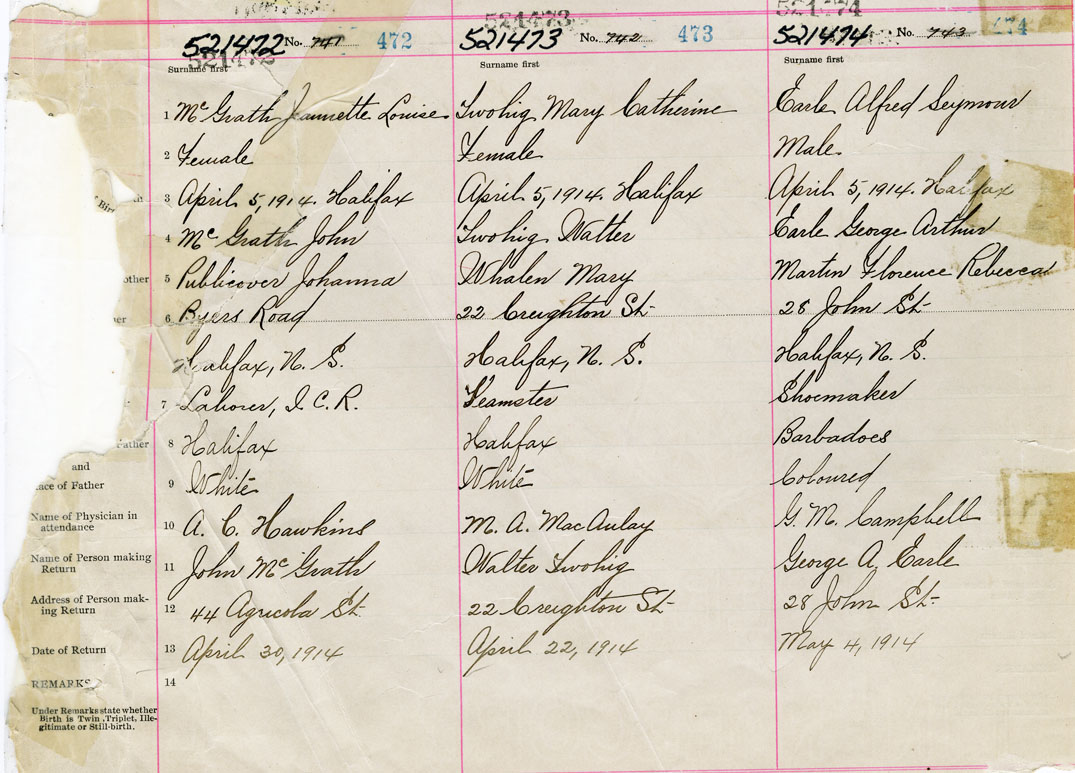 521472 No. 741 472
521472
Surname first
521473
521473 No. 742 473
Surname first
521474
521474 No. 743 474
Surname first
1 McGrath Jeannette Louise Twohig Mary Catherine Earle Alfred Seymour
2 Female Female Male
3 April 5, 1914. Halifax April 5, 1914. Halifax April 5, 1914. Halifax
4 McGrath John Twohig Walter Earle George Arthur
other 5 Publicover Johanna Whalen Mary Martin Florence Rebecca
her 6 Byers Road 22 Creighton St. 28 John St.
Halifax, N. S. Halifax, N. S. Halifax, N. S.
7 Laborer, I. C. R. Teamster Shoemaker
Father 8 Halifax Halifax Barbadoes
and
ace of Father 9 White White Coloured
Name of Physician in
attendance 10 A. C. Hawkins M. A. MacAulay G. M. Campbell
Name of Person making
Return 11 John McGrath Walter Twohig George A. Earle
Address of Person mak-
ing Return 12 44 Agricola St. 22 Creighton St. 28 John St.
Date of Return 13 April 30, 1914 April 22, 1914 May 4, 1914
REMARKS 14
Under Remarks state whether
Birth is Twin, Triplet, Ille-
gitimate or Still-birth.